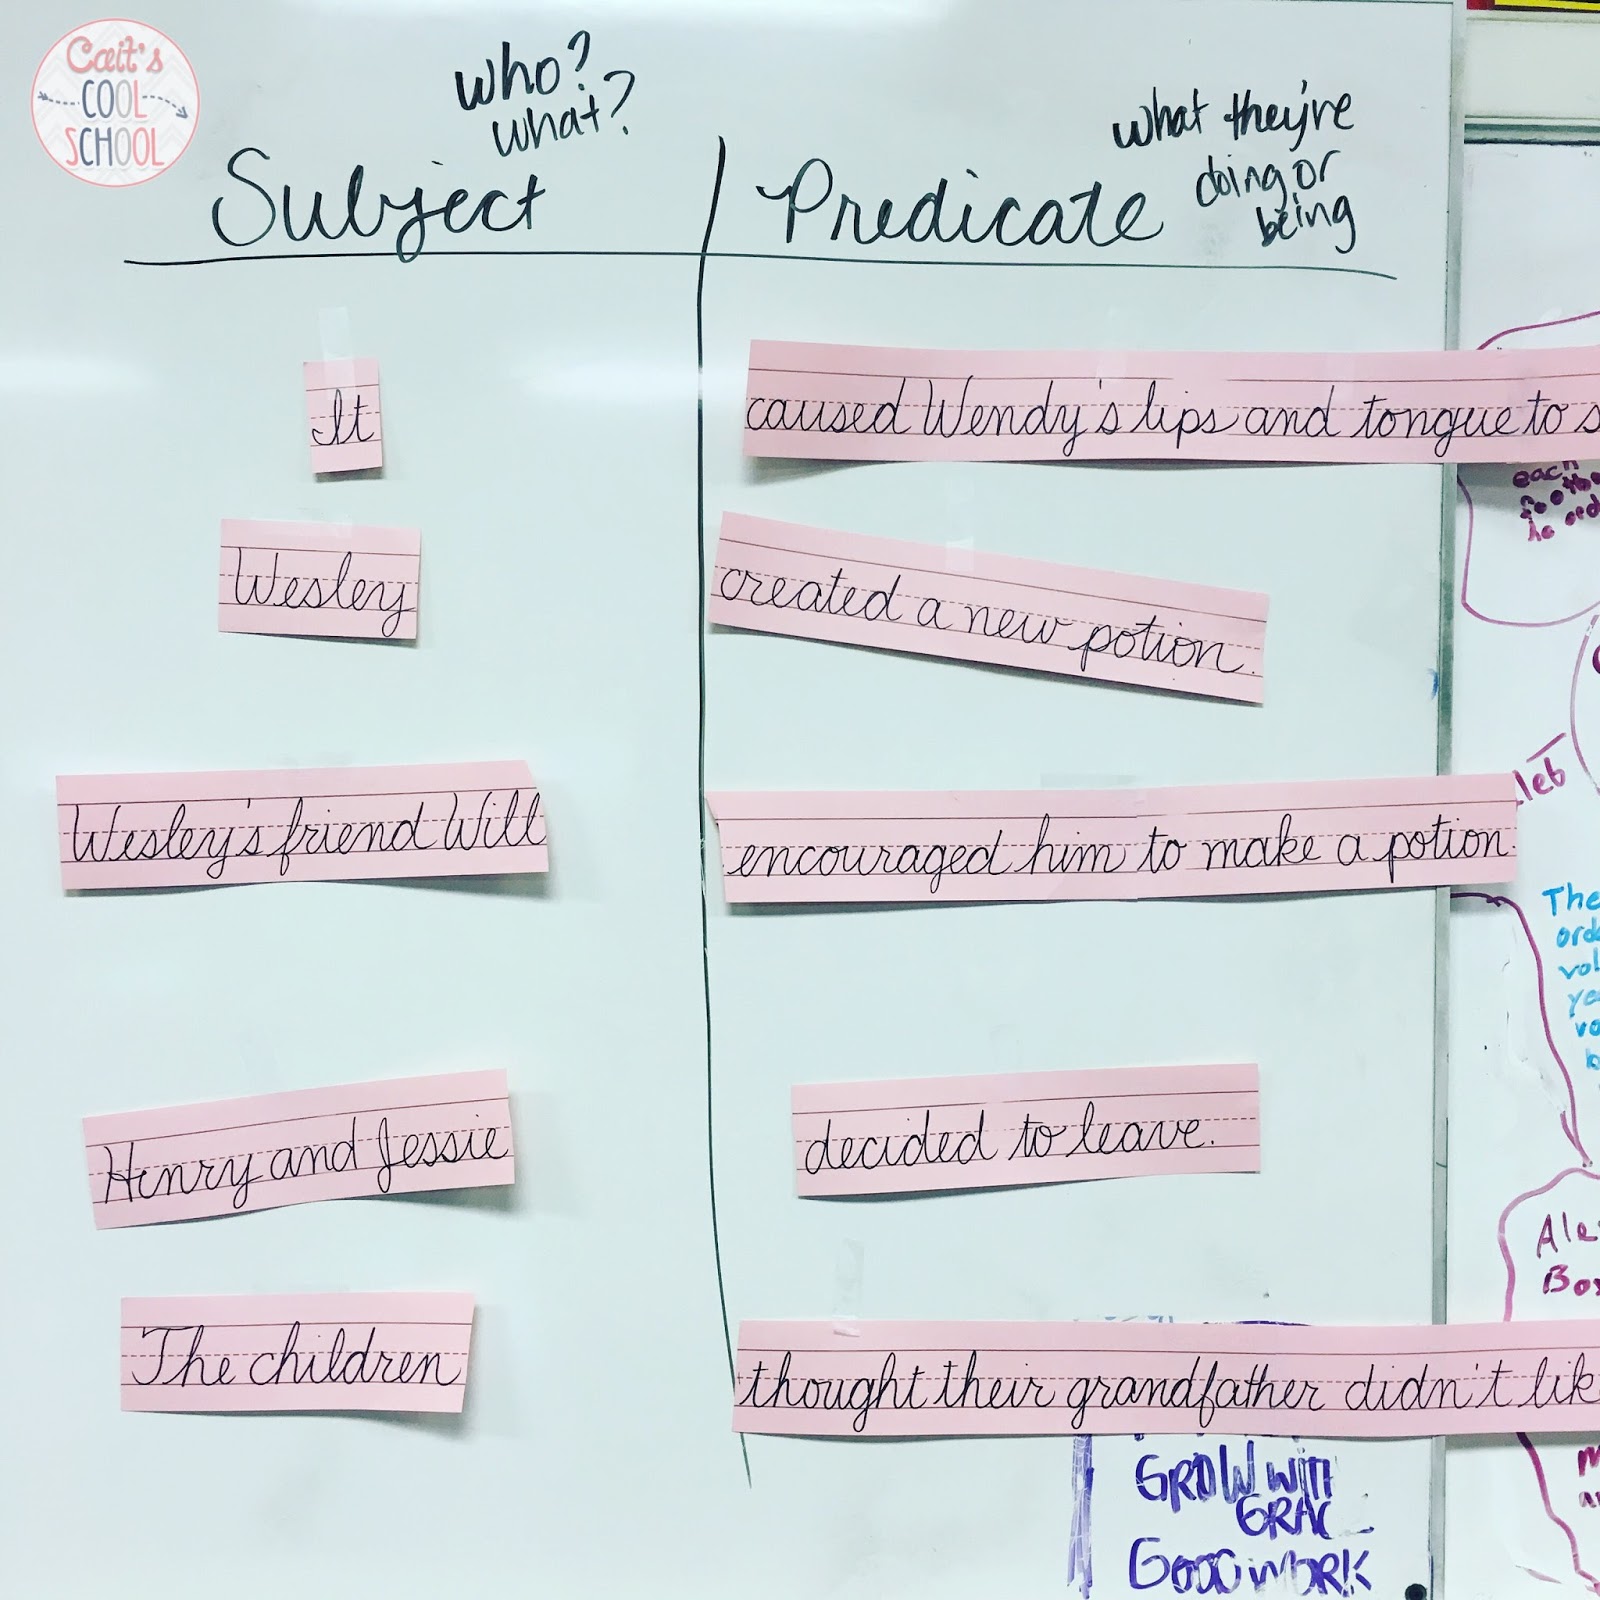 Cait's
COOL
SCHOOL
who?
what?
what they're
doing or
being
Subject
Predicate
It
caused Wendy's lips and tongue to s
each
Wesley
created a new potion.
Wesley's friend Will
encouraged him to make a potion.
Henry and Jessie
decided to leave.
The children
thought their grandfather didn't lik
GROW WITH
GRAC
GOOD WORK
leb
The
orde
vol
ye
vo
b
Ale
Bos